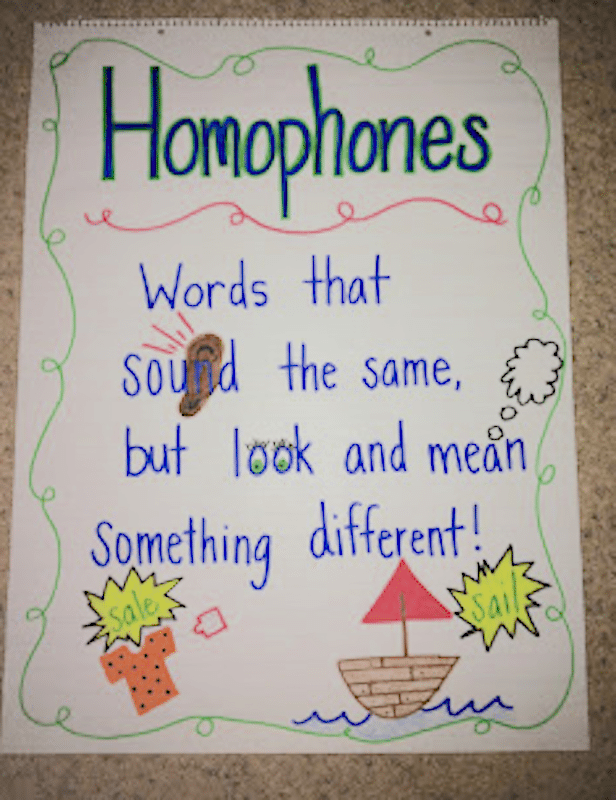 Homophones
Words that
sound the same,
but look and mean
something different!
sale
sail